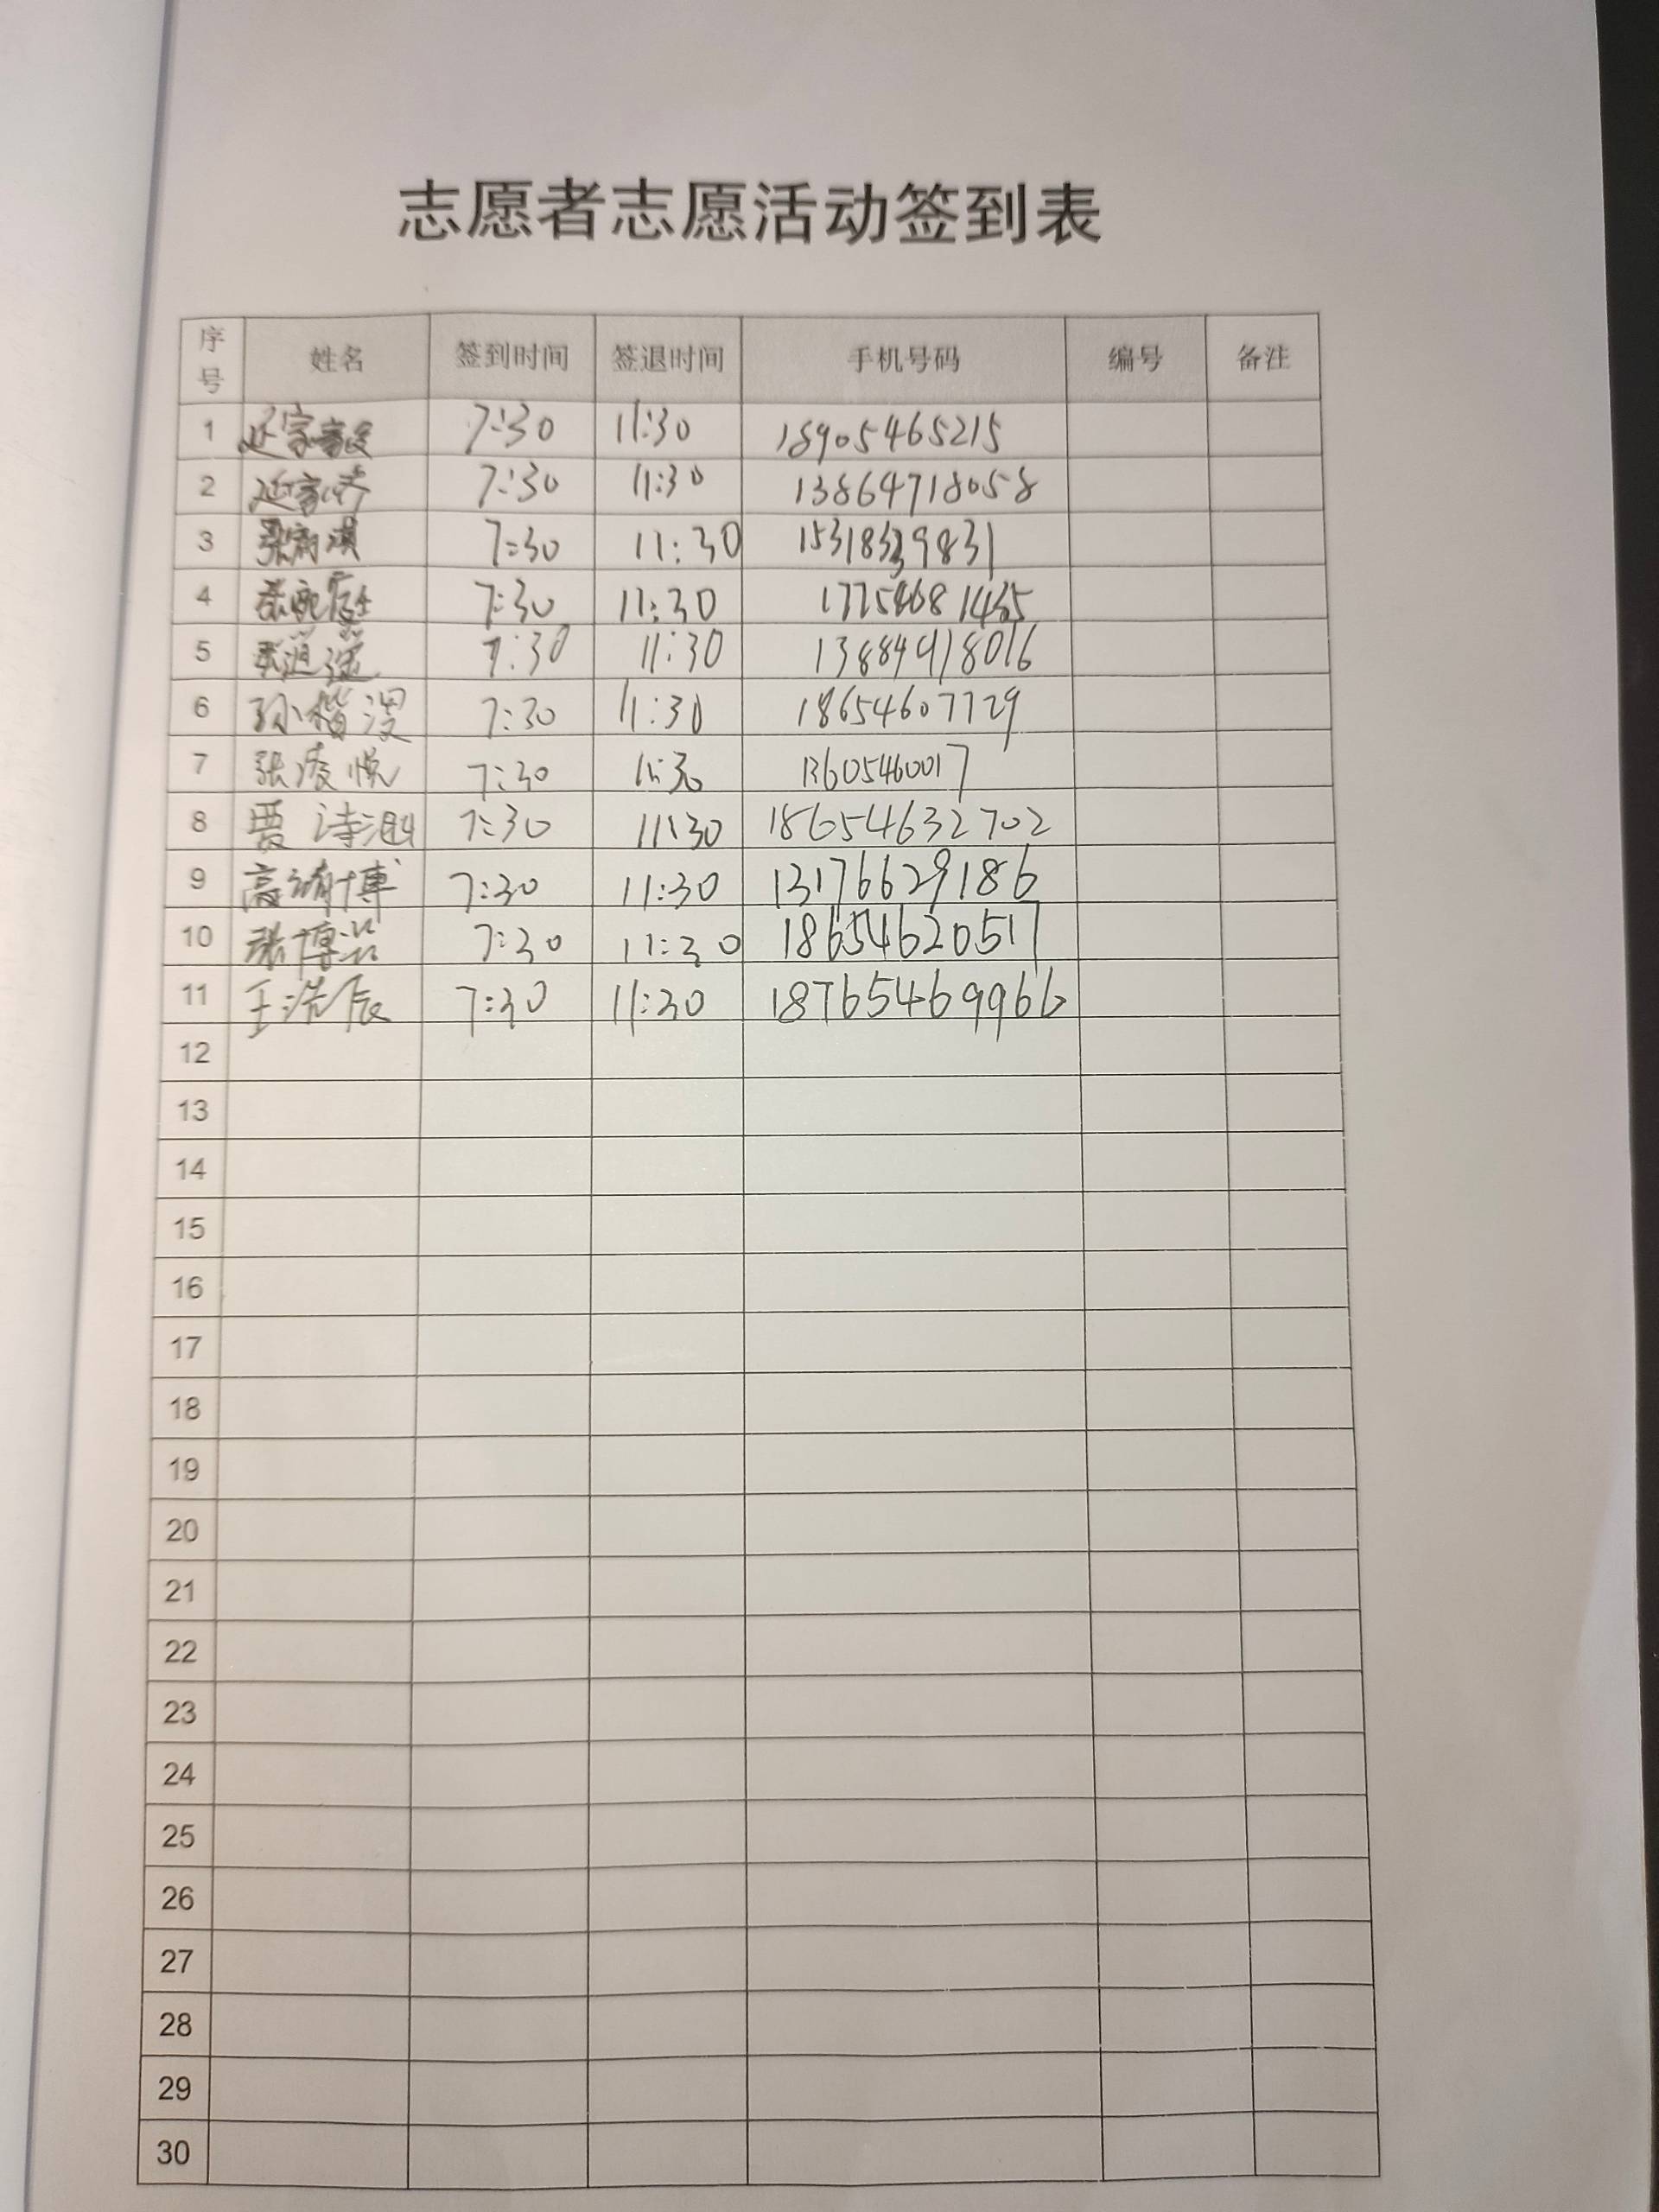 志愿者志愿活动签到表
序号 姓名 签到时间 签退时间 手机号码 编号 备注
1 7:30 11:30 18905465215
2 7:30 11:30 13864718058
3 7:30 11:30
4 7:30 11:30
5 张逍遥 7:30 11:30
6 孙楷漫 7:30 11:30 18654607729
7 张凌悦 7:30 11:30 13605460017
8 贾诗 7:30 11:30 18654632702
9 高靖博 7:30 11:30 13176629186
10 张博芸 7:30 11:30 18654620517
11 王浩辰 7:30 11:30 18765469966
12
13
14
15
16
17
18
19
20
21
22
23
24
25
26
27
28
29
30